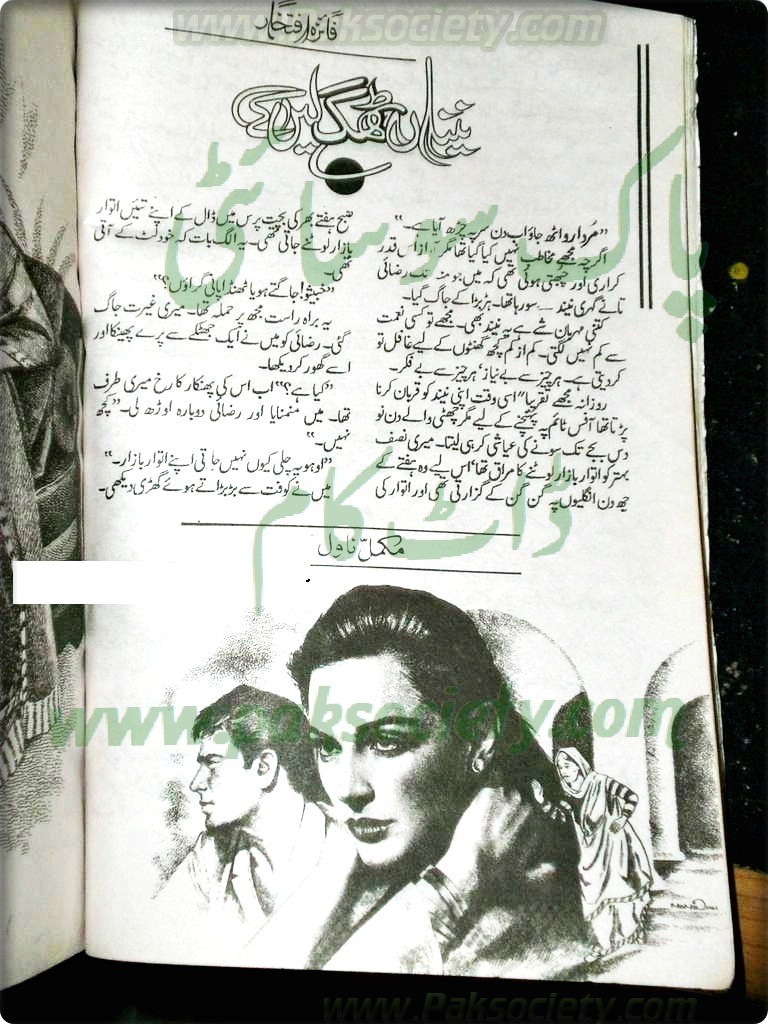 www.Paksociety.com
فائزہ افتخار
نیناں ٹھگ لیں گے
”مُردارو اٹھ جاؤ اب دن سر پہ چڑھ آیا ہے۔“
اگرچہ مجھے مخاطب نہیں کیا گیا تھا مگر آواز اس قدر
کراری اور چبھتی ہوئی تھی کہ میں جو منہ تک رضائی
تانے گہری نیند سو رہا تھا۔ ہڑبڑا کے جاگ گیا۔
کتنی مہربان شے ہے یہ نیند بھی۔ مجھے تو کسی نعمت
سے کم نہیں لگتی۔ کم از کم کچھ گھنٹوں کے لیے غافل تو
کر دیتی ہے۔ ہر چیز سے بے نیاز، ہر چیز سے بے فکر۔
روزانہ مجھے تقریباً اسی وقت اپنی نیند کو قربان کرنا
پڑتا تھا آفس ٹائم پہ پہنچنے کے لیے مگر چھٹی والے دن نو
دس بجے تک سونے کی عیاشی کر ہی لیتا۔ میری نصف
بہتر کو اتوار بازار لوٹنے کا مراق تھا، اس لیے وہ ہفتے کے
چھ دن انگلیوں پہ گن گن کے گزارتی تھی اور اتوار کی
صبح ہفتے بھر کی بچت پرس میں ڈال کے اپنے تئیں اتوار
بازار لوٹنے جاتی تھی۔ یہ الگ بات کہ خود لٹ کے آتی
تھی۔
”خبیثو! جاگتے ہو یا ٹھنڈا پانی گراؤں؟“
یہ براہ راست مجھ پر حملہ تھا۔ میری غیرت جاگ
گئی۔ رضائی کو میں نے ایک جھٹکے سے پرے پھینکا اور
اسے گھور کر دیکھا۔
”کیا ہے؟“ اب اس کی پھنکار کا رخ میری طرف
تھا۔ میں منمنایا اور رضائی دوبارہ اوڑھ لی۔ ”کچھ
نہیں۔“
”اوہو یہ چلی کیوں نہیں جاتی اپنے اتوار بازار۔“
میں نے کوفت سے بڑبڑاتے ہوئے گھڑی دیکھی۔
پاک سوسائٹی
ڈاٹ کام
مکمل ناول
www.paksociety.com
www.Paksociety.com